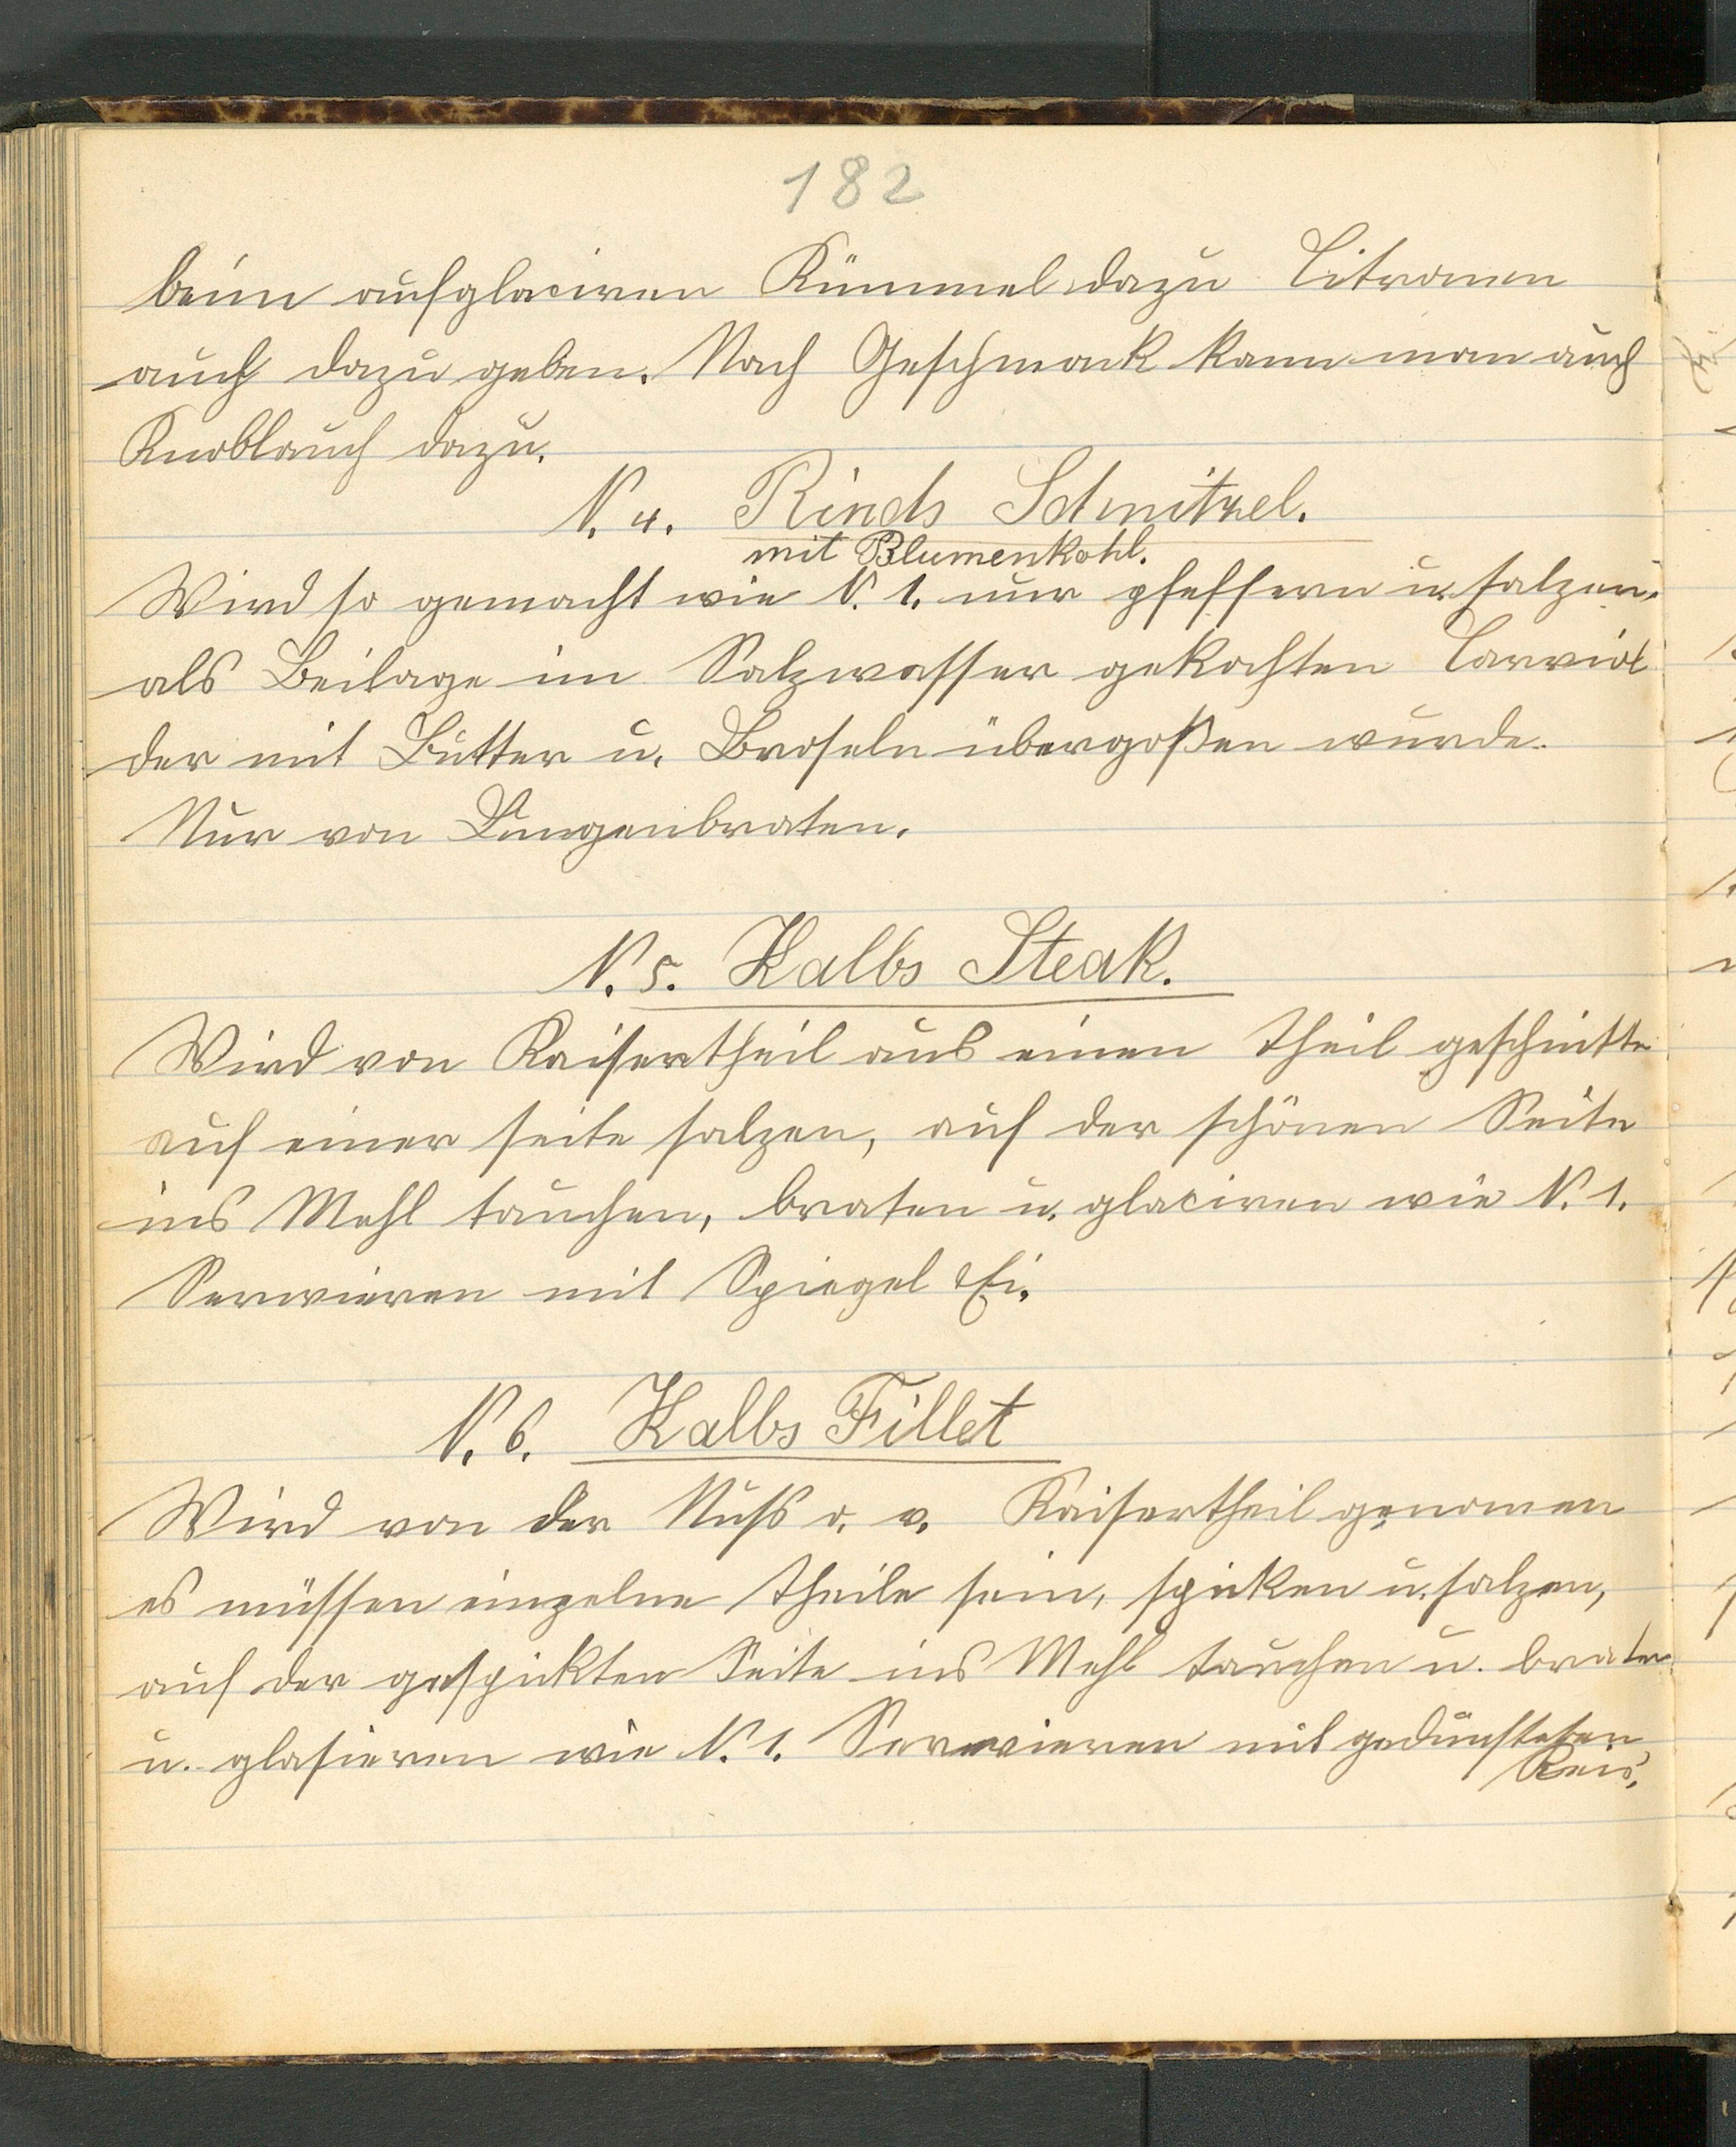 182
beim aufglaciren Kümmel dazu Citronen
auch dazu geben. Nach Geschmack kann man auch
Knoblauch dazu.
N. 4. Rinds Schnitzel.
mit Blumenkohl.
Wird so gemacht wie N. 1. nur pfeffern u. salzen.
als Beilage im Salzwasser gekochten Carviol
der mit Butter u. Broseln übergoßen wurde.
Nur von Lungenbraten.
N. 5. Kalbs Steak.
Wird von Kaisertheil aus einen Theil geschnitten
auf einer seite salzen, auf der schönen Seite
ins Mehl tauchen, braten u. glaciren wie N. 1.
Serwieren mit Spiegel Ei.
N. 6. Kalbs Fillet
Wird von der Nuß o. v. Kaisertheil genomen
es müssen einzelne Theile sein, spicken u. salzen,
auf der gespickten Seite ins Mehl tauchen u. braten
u. glasieren wie N. 1. Serwieren mit gedünsteten
Reis.